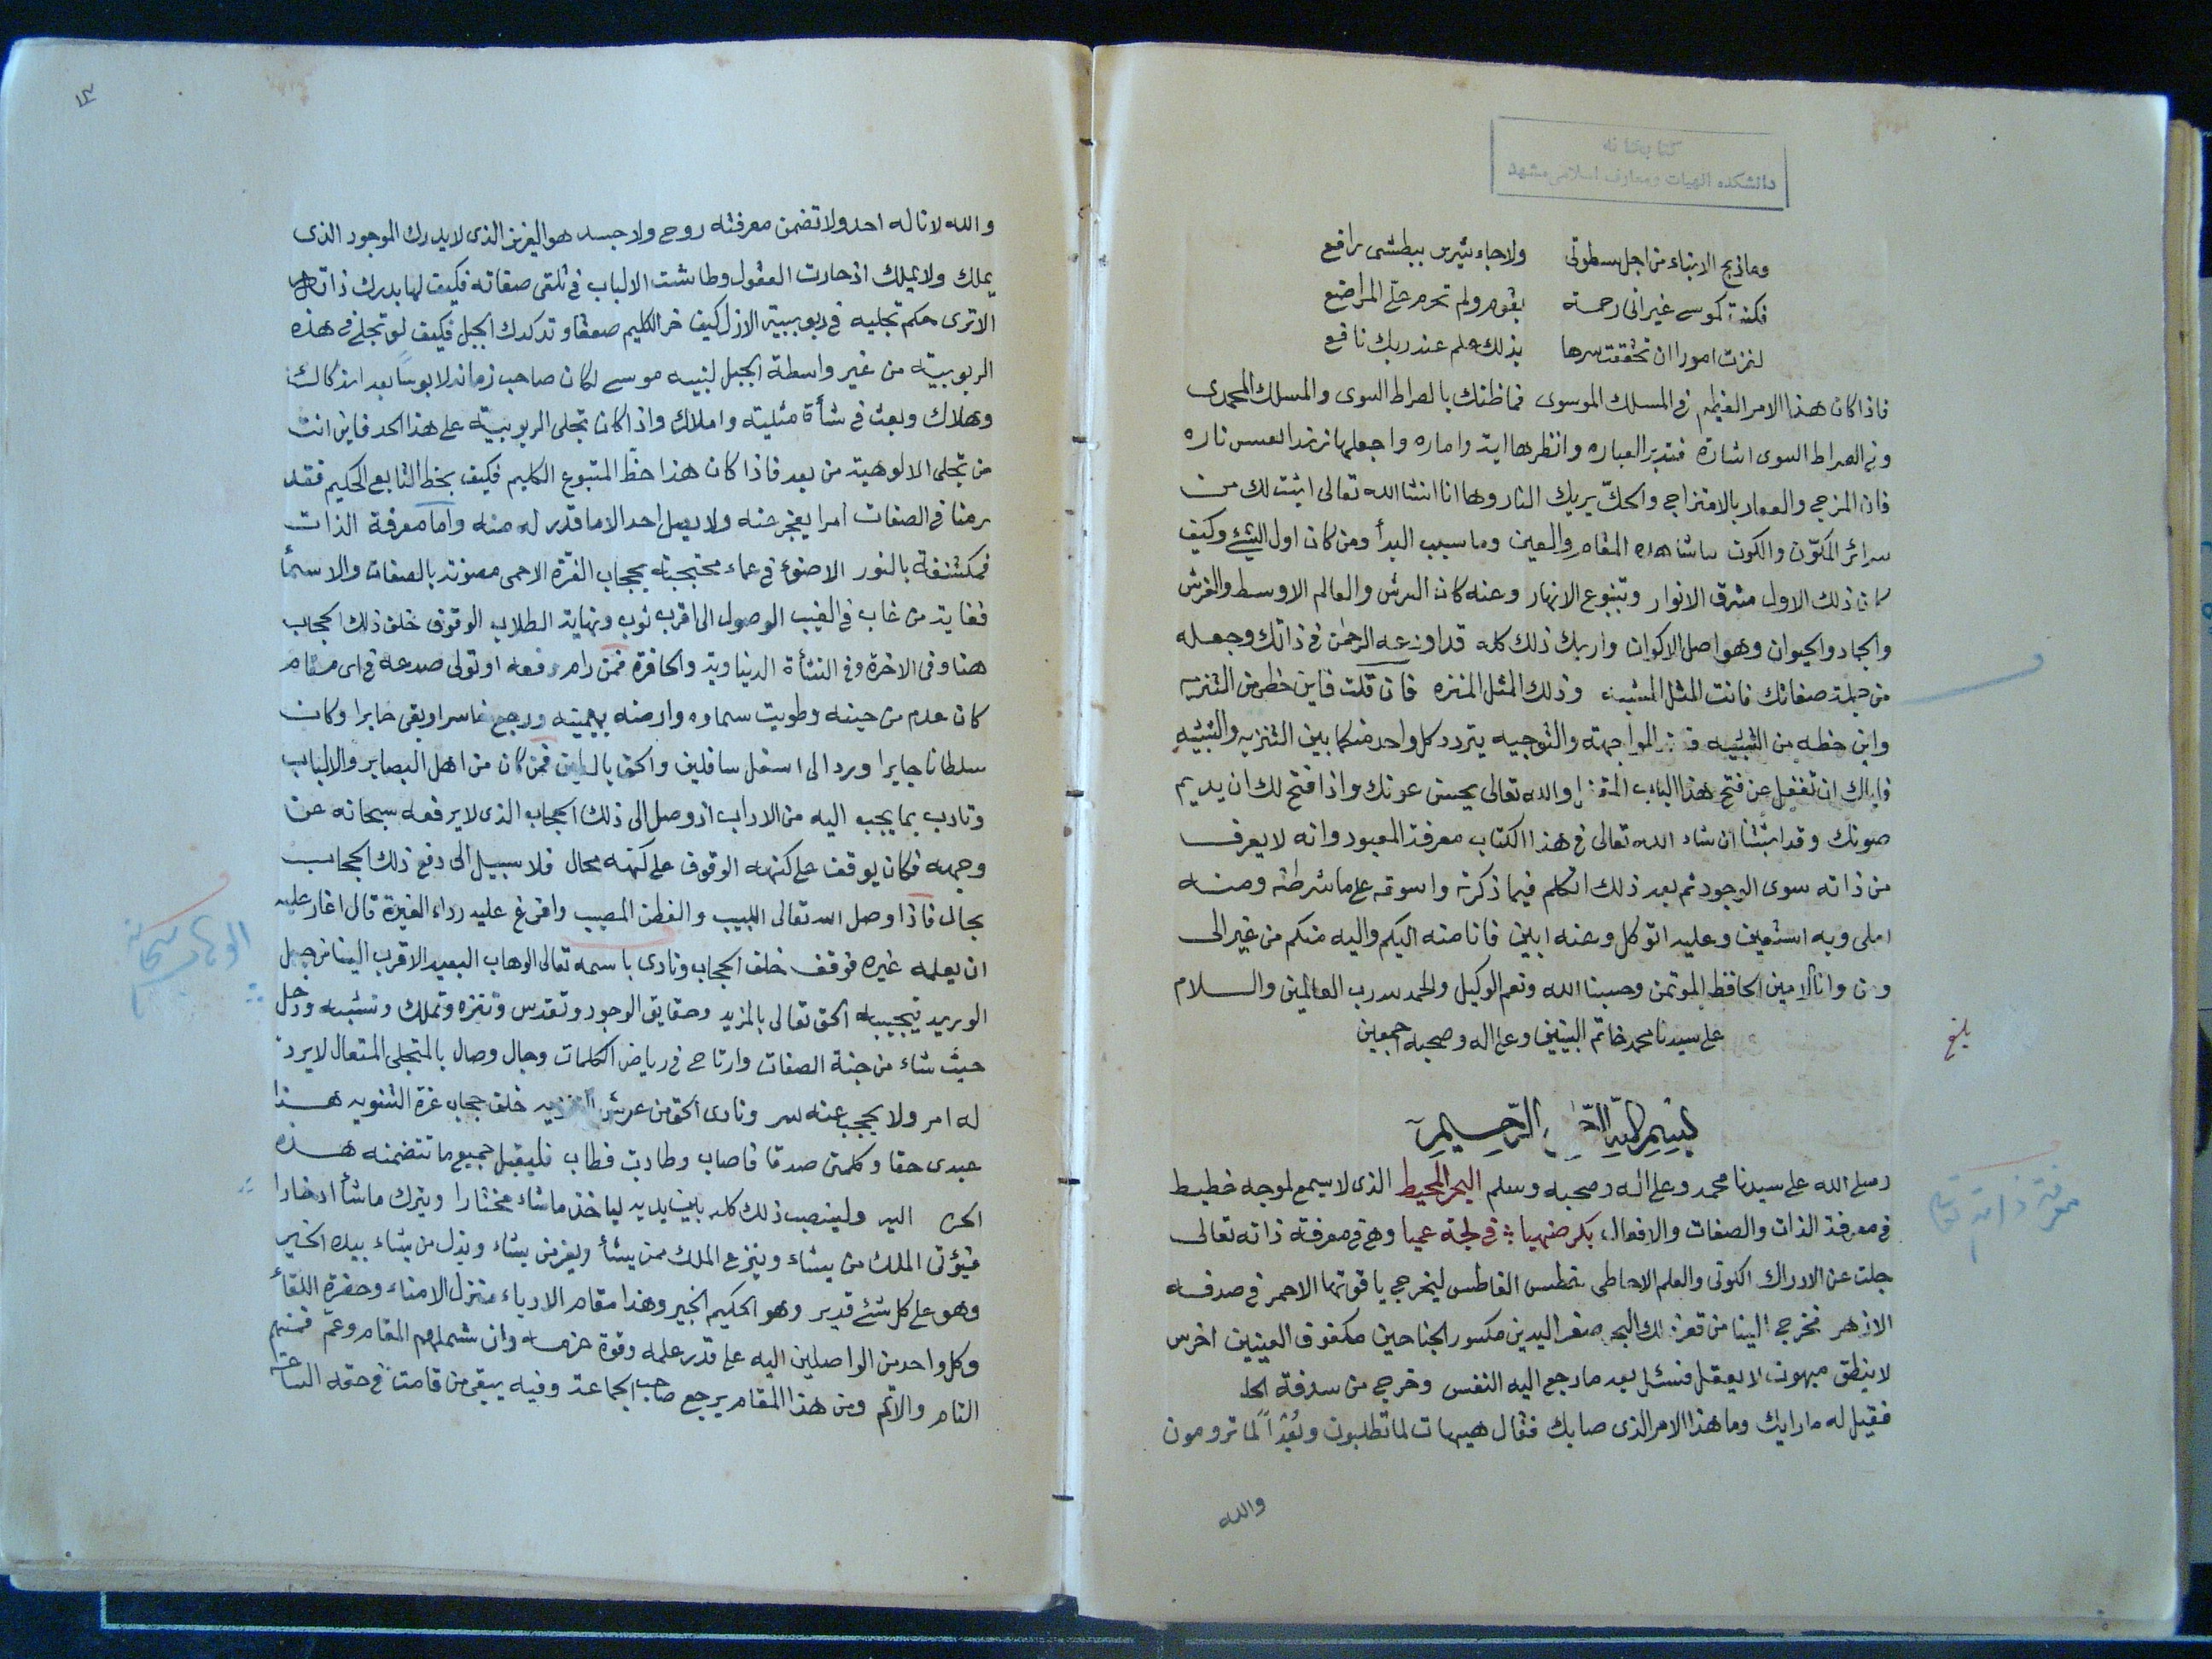 كتابخانه
دانشكده الهيات ومعارف اسلامى مشهد
وما ذبح الابناء من اجل سطوتى ولا جاء شرير ببطشى رافع
فكنت كموسى غير انى رحمة بقوم ولم تحرم على المراضع
لغزت امورا ان تحققت سرها بذلك علم عند ربك نافع
فاذا كان هذا الامر العظيم فى المسلك الموسوى فما ظنك بالصراط السوى والمسلك المحمدى
وفى الصراط السوى اشارة فتدبر العباره وانظرها اية واماره واجعلها زند العس ناره
فان المرخ والعفار بالامتزاج والحكّ يريك النار وها انا انشا الله تعالى اثبت لك من
سرائر المكوّن والكون ما شاهده المقام والعين وما سبب البدأ ومن كان اول النشئ وكيف
كان ذلك الاول مشرق الانوار وينبوع الانهار وعنه كان العرش والعالم الاوسط والفرش
والجماد والحيوان وهو اصل الاكوان واريك ذلك كله قد اودعه الرحمن فى ذاتك وجعله
من جملة صفاتك فانت المثل المشبه وذلك المثل المنزه فان قلت فاين حظى من التنزيه
واين حظه من التشبيه المواجهة والتوجيه يتردد كل واحد منكما بين التنزيه والتشبيه
فاياك ان تغفل عن فتح هذا الباب والله تعالى يحسن عونك واذا فتح لك ان يديم
صونك وقد اثبتنا ان شاء الله تعالى فى هذا الكتاب معرفة المعبود وانه لا يعرف
من ذاته سوى الوجود ثم بعد ذلك اتكلم فيما ذكرته واسوقه على ما شرطته ومنه
املى وبه استعين وعليه اتوكل وعنه ابين فانا منه اليكم واليه منكم من غير الى
ومن وانا الامين الحافظ الموتمن وحسبنا الله ونعم الوكيل والحمد لله رب العالمين والسلام
على سيدنا محمد خاتم النبيين وعلى اله وصحبه اجمعين
بلغ
بسم الله الرحمن الرحيم
وصلى الله على سيدنا محمد وعلى اله وصحبه وسلم البحر المحيط الذى لا يسمع لموجه غطيط
فى معرفة الذات والصفات والافعال بكر صهباء فى لجة عميا وهى فى معرفة ذاته تعالى
جلت عن الادراك الكونى والعلم الاحاطى غطس الغاطس ليخرج ياقوتها الاحمر فى صدفه
الازهر فخرج الينا من قعر ذلك البحر صفر اليدين مكسور الجناحين مكفوف العينين اخرس
لا ينطق مبهوت لا يعقل فسئل بعد ما رجع اليه النفس وخرج من سدفة
فقيل له ما رايك وما هذا الامر الذى صابك فقال هيهات لما تطلبون وبُعْداً لما ترومون
والله
معرفة ذاته تعالى
والله لا ناله احد ولا تضمن معرفته روح ولا جسد هو العزيز الذى لا يدرك الموجود الذى
يملك ولا يملك اذ حارت العقول وطاشت الالباب فى تلقى صفاته فكيف لها بدرك ذاته
الا ترى حكم تجليه فى ربوبيته الازل كيف خر الكليم صعقا وتدكدك الجبل فكيف لو تجلى فى هذه
الربوبية من غير واسطة الجبل لنبيه موسى لكان صاحب
وهلاك وبعث فى نشأة مثلية واملاك واذا كان تجلى الربوبية على هذا الحد فاين انت
من تجلى الالوهية من بعد فاذا كان هذا حظ المتبوع الكليم فكيف بحظ التابع الحكيم فقد
رمنا فى الصفات امرا يعجز عنه ولا يصل احد الا ما قدر له منه واما معرفة الذات
فمكتنفة بالنور الاضوء فى عماء محتجبة بحجاب العزة الاحمى مصونة بالصفات والاسمأ
فغاية من غاب فى الغيب الوصول الى اقرب ثوب ونهاية الطلاب الوقوف خلف ذلك الحجاب
هنا وفى الاخرة وفى النشأة الدنياوية والحافرة فمن رام رفعه او تولى صدعه فى اى مقام
كان عدم من حينه وطويت سماوه وارضه بيمينه ورجع خاسرا وبقى حايرا وكان
سلطانا جايرا ورد الى اسفل سافلين والحق بالطين فمن كان من اهل البصاير والالباب
وتادب بما يجب اليه من الاداب اذ وصل الى ذلك الحجاب الذى لا يرفعه سبحانه عن
وجهه فكان يوقف على كنهه الوقوف على كنهه محال فلا سبيل الى رفع ذلك الحجاب
بحال فاذا وصل الله تعالى اللبيب والفطن المصيب وافرغ عليه رداء الغيرة قال اغار عليه
ان يعلمه غيره فوقف خلف الحجاب ونادى باسمه تعالى الوهاب البعيد الاقرب الينا من حبل
الوريد فيجيبه الحق تعالى بالمزيد وحقايق الوجود وتقدس وتنزه وتملك وتشبه ودخل
حيث شاء من جنة الصفات وارتاح فى رياض الكلمات وجال وصال بالمتجلى المتعال لا يرد
له امر ولا يحجب عنه سر ونادى الحق من عرش التنزيه خلف حجاب عزة التنويه هذا
عبدى حقا وكلمتى صدقا فاصاب وطاب فليقبل جميع ما تتضمنه هذه
الحره اليه ولينصب ذلك كله بين يديه لياخذ ما شاء مختارا ويترك ما شأ ادخارا
فيؤتى الملك من يشاء وينزع الملك ممن يشأ ويعز من يشاء ويذل من يشاء بيده الخير
وهو على كل شئ قدير وهو الحكيم الخبير وهذا مقام الادباء ومنزل الامناء وحضرة اللقأ
وكل واحد من الواصلين اليه على قدر علمه وقوة عزمه وان شملهم المقام وعمّ فمنهم
التام والاتم ومن هذا المقام يرجع صاحب الجماعة وفيه يبقى من قامت فى حقه الساعة